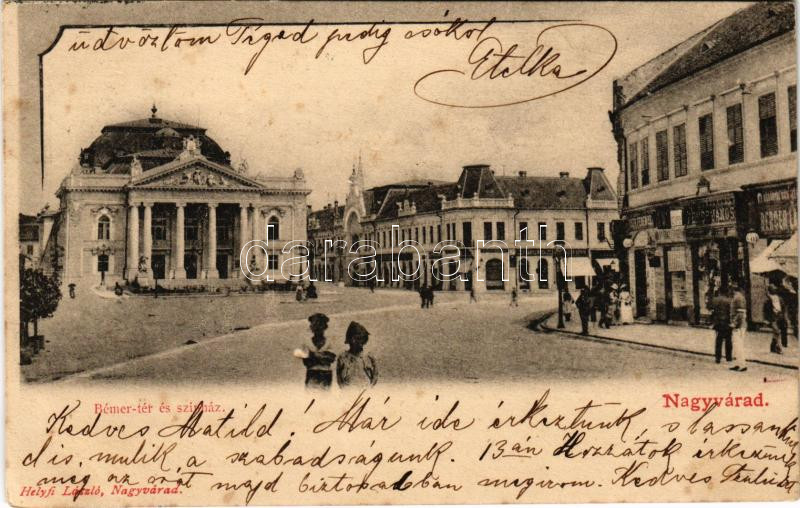 üdvözlöm Tiged pedig csókol
Etelka
darabanth.com
Bémer-tér és színház.
Nagyvárad.
Kedves Matild! Már ide érkeztünk, s lassan
dis, mulik a szabadságunk. 13án Hozzátok érkezünk
meg az órát majd biztosabban megirom. Kedves
Helyfi László, Nagyvárad.